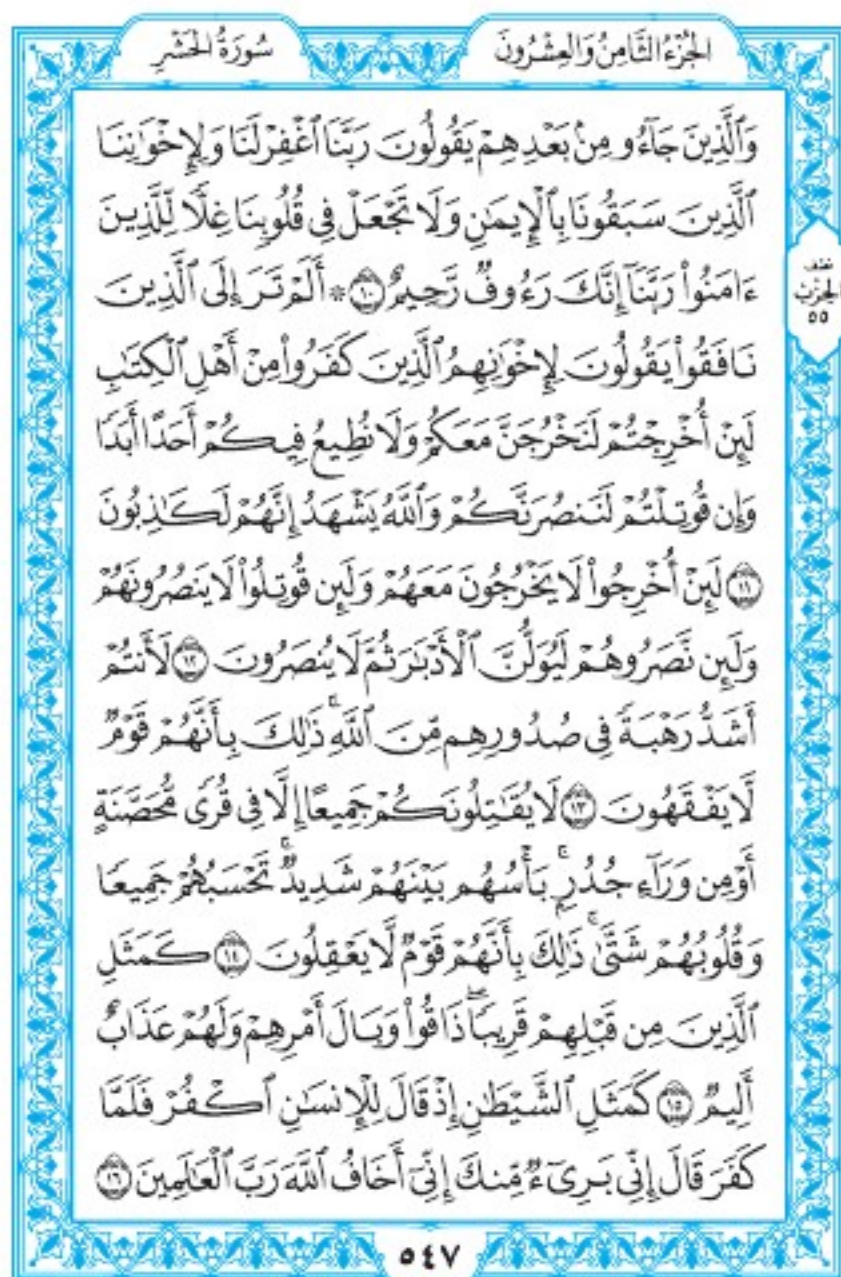 الجُزْءُ الثَّامِنُ وَالعِشْرُونَ
سُورَةُ الحَشْرِ
وَٱلَّذِينَ جَآءُو مِنۢ بَعۡدِهِمۡ يَقُولُونَ رَبَّنَا ٱغۡفِرۡ لَنَا وَلِإِخۡوَٰنِنَا
ٱلَّذِينَ سَبَقُونَا بِٱلۡإِيمَٰنِ وَلَا تَجۡعَلۡ فِي قُلُوبِنَا غِلّٗا لِّلَّذِينَ
ءَامَنُواْ رَبَّنَآ إِنَّكَ رَءُوفٞ رَّحِيمٌ ١٠ ۞ أَلَمۡ تَرَ إِلَى ٱلَّذِينَ
نَافَقُواْ يَقُولُونَ لِإِخۡوَٰنِهِمُ ٱلَّذِينَ كَفَرُواْ مِنۡ أَهۡلِ ٱلۡكِتَٰبِ
لَئِنۡ أُخۡرِجۡتُمۡ لَنَخۡرُجَنَّ مَعَكُمۡ وَلَا نُطِيعُ فِيكُمۡ أَحَدًا أَبَدٗا
وَإِن قُوتِلۡتُمۡ لَنَنصُرَنَّكُمۡ وَٱللَّهُ يَشۡهَدُ إِنَّهُمۡ لَكَٰذِبُونَ
١١ لَئِنۡ أُخۡرِجُواْ لَا يَخۡرُجُونَ مَعَهُمۡ وَلَئِن قُوتِلُواْ لَا يَنصُرُونَهُمۡ
وَلَئِن نَّصَرُوهُمۡ لَيُوَلُّنَّ ٱلۡأَدۡبَٰرَ ثُمَّ لَا يُنصَرُونَ ١٢ لَأَنتُمۡ
أَشَدُّ رَهۡبَةٗ فِي صُدُورِهِم مِّنَ ٱللَّهِۚ ذَٰلِكَ بِأَنَّهُمۡ قَوۡمٞ
لَّا يَفۡقَهُونَ ١٣ لَا يُقَٰتِلُونَكُمۡ جَمِيعًا إِلَّا فِي قُرٗى مُّحَصَّنَةٍ
أَوۡ مِن وَرَآءِ جُدُرِۭۚ بَأۡسُهُم بَيۡنَهُمۡ شَدِيدٞۚ تَحۡسَبُهُمۡ جَمِيعٗا
وَقُلُوبُهُمۡ شَتَّىٰۚ ذَٰلِكَ بِأَنَّهُمۡ قَوۡمٞ لَّا يَعۡقِلُونَ ١٤ كَمَثَلِ
ٱلَّذِينَ مِن قَبۡلِهِمۡ قَرِيبٗاۖ ذَاقُواْ وَبَالَ أَمۡرِهِمۡ وَلَهُمۡ عَذَابٌ
أَلِيمٞ ١٥ كَمَثَلِ ٱلشَّيۡطَٰنِ إِذۡ قَالَ لِلۡإِنسَٰنِ ٱكۡفُرۡ فَلَمَّا
كَفَرَ قَالَ إِنِّي بَرِيٓءٞ مِّنكَ إِنِّيٓ أَخَافُ ٱللَّهَ رَبَّ ٱلۡعَٰلَمِينَ ١٦
نصف
الحزب
٥٥
٥٤٧